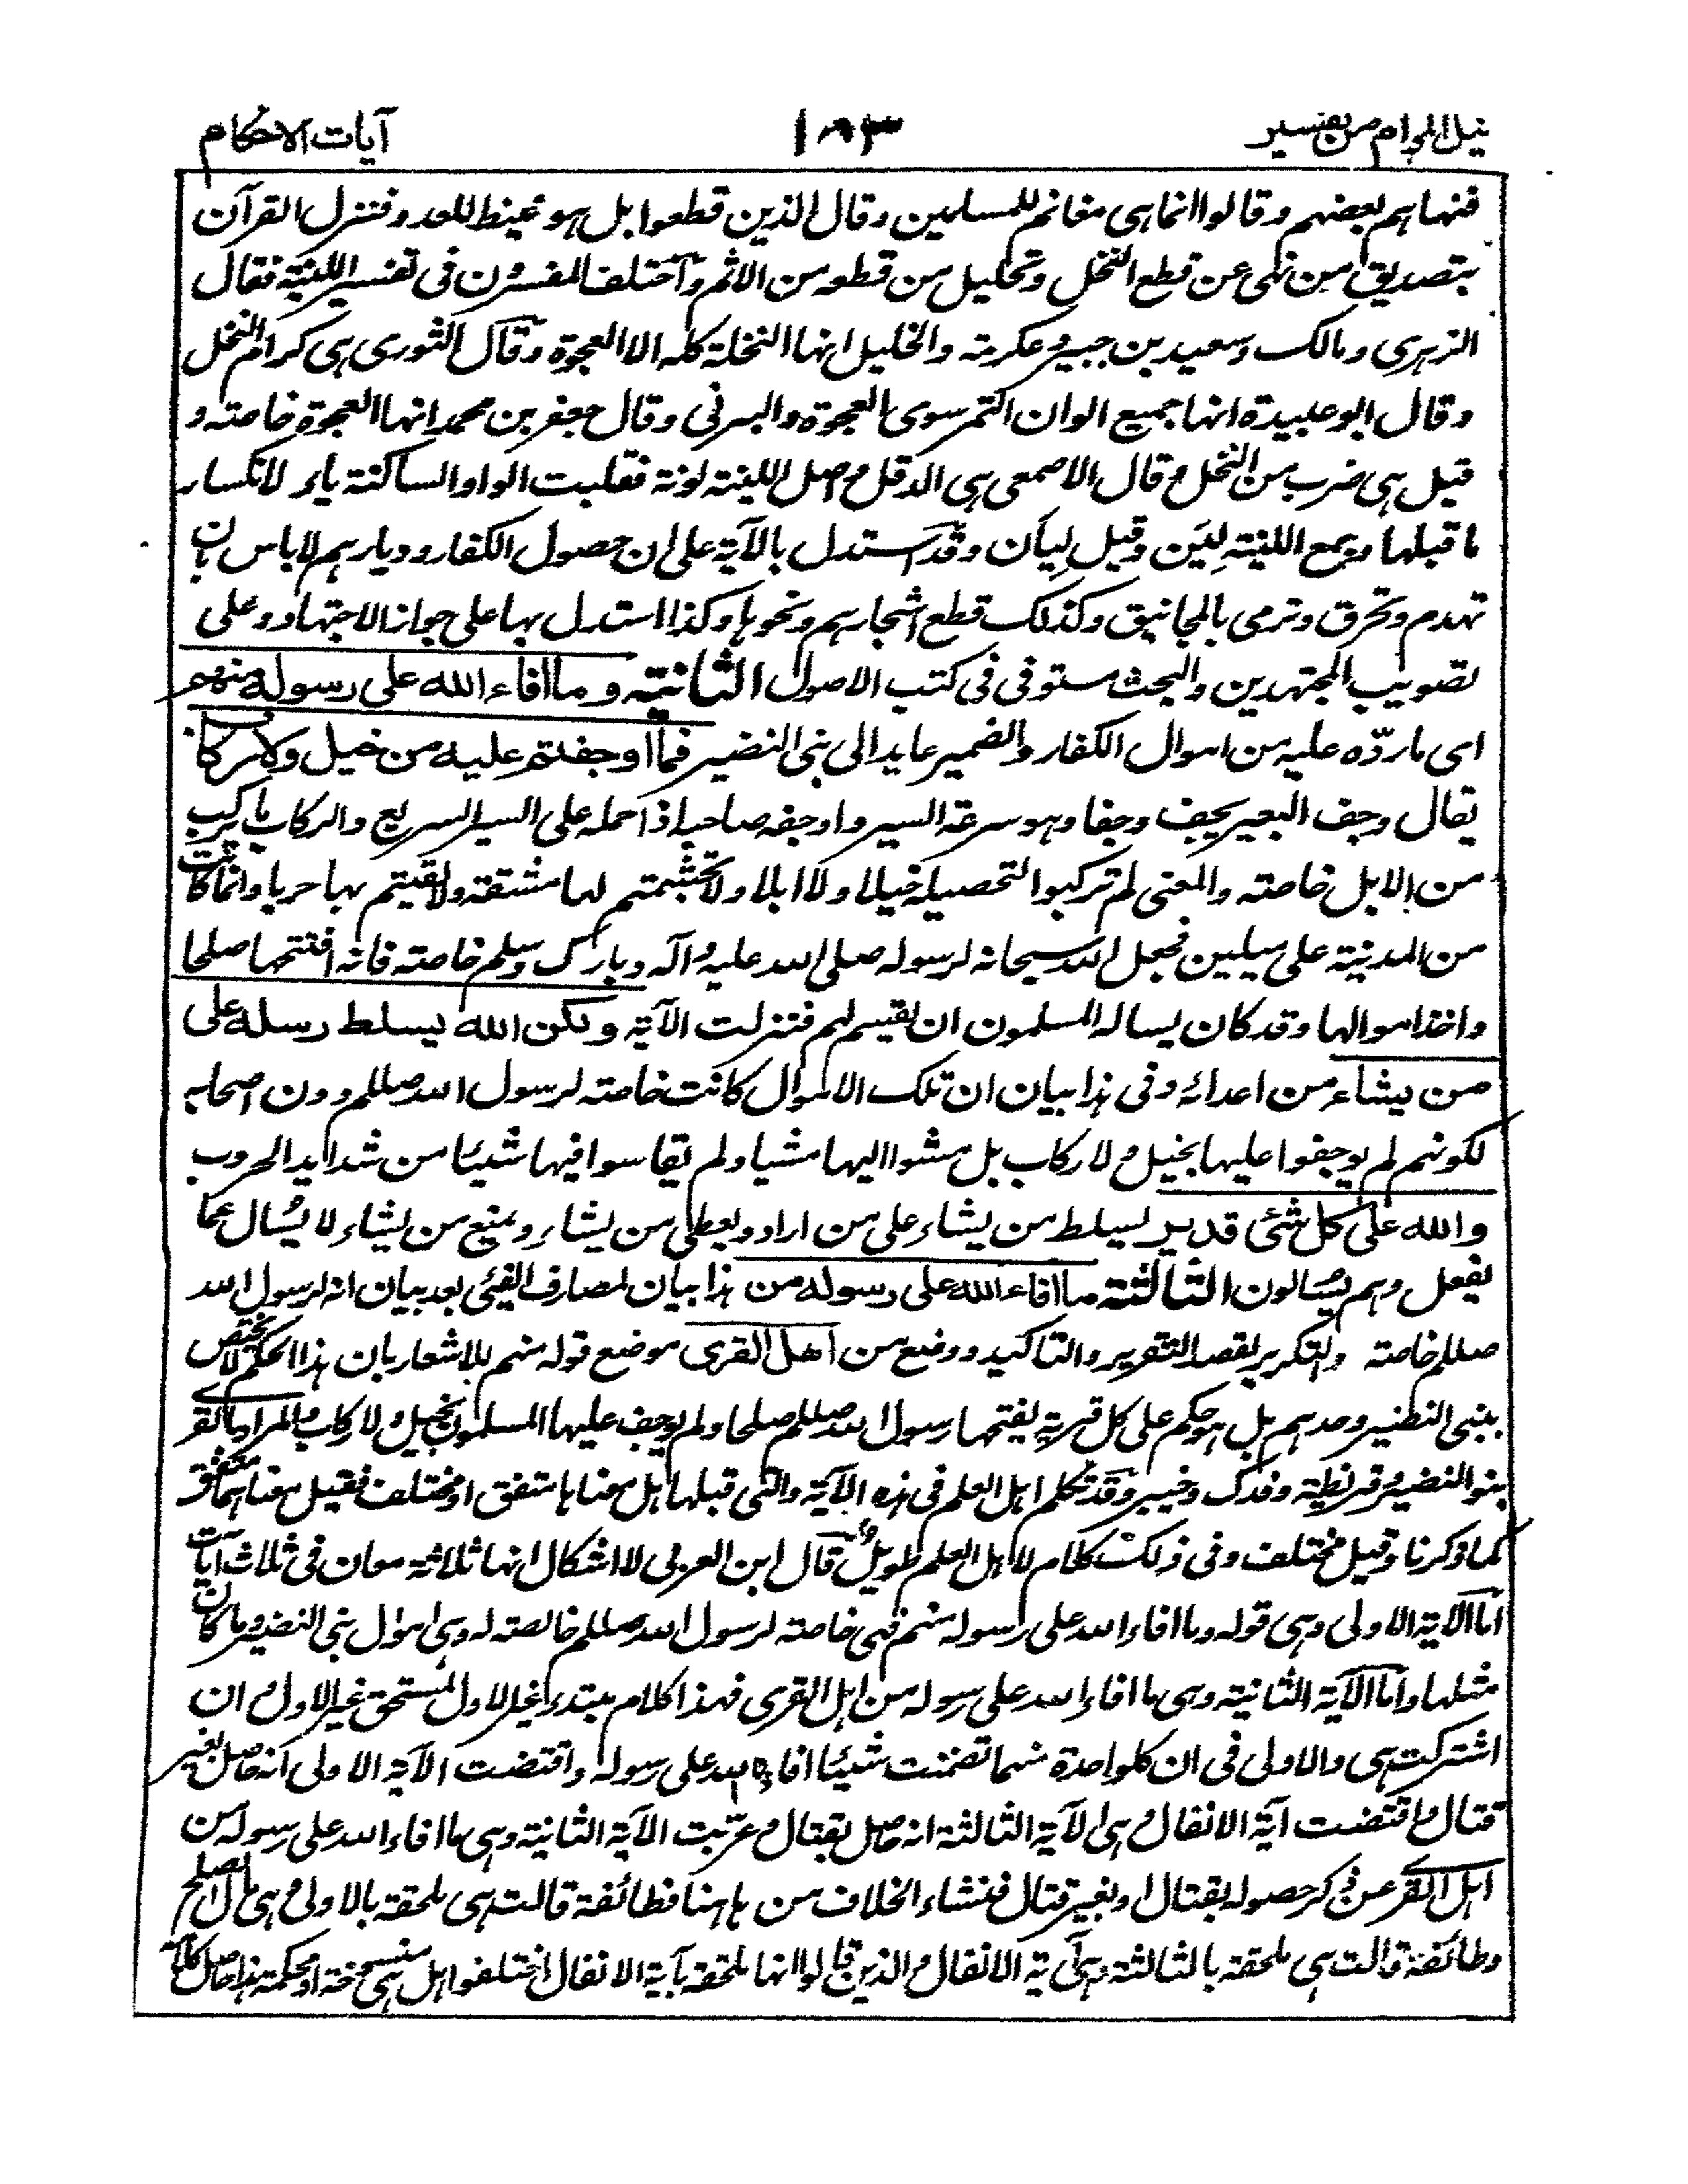 نيل المرام من تفسير ١٨٣ آيات الاحكام
فنهاهم بعضهم وقالوا انما هى مغانم للمسلمين وقال الذين قطعوا بل هو غيظ للعدو فتنزل القرآن
بتصديق من نهى عن قطع النخل وتحليل من قطعه من الاثم وآختلف المفسرون فى تفسير اللينة فقال
الزهرى ومالك وسعيد بن جبير وعكرمة والخليل انها النخلة كله الا العجوة وقال الثورى هى كرام النخل
وقال ابو عبيدة انها جميع الوان التمر سوى العجوة والبرنى وقال جعفر بن محمد انها العجوة خاصته و
قيل هى ضرب من النخل وقال الاصمعى هى الدقل واصل اللينة لونة فقلبت الواو الساكنة ياء لانكسار
ما قبلها وجمع اللينة لِيَن وقيل لِيَان وقد استدل بالآية على ان حصول الكفار وديارهم لا باس بان
تهدم وتحرق وترمى بالمجانيق وكذلك قطع اشجارهم ونحوها وكذا استدل بها على جواز الاجتهاد وعلى
تصويب المجتهدين والبحث مستوفى فى كتب الاصول الثانية وما افاء الله على رسوله منهم
اى ما ردّه عليه من اموال الكفار والضمير عايد الى بنى النضير فما اوجفتم عليه من خيل ولا ركاب
يقال وجف البعير يجف وجفا وهو سرعة السير واوجفه صاحبه اذا حمله على السير السريع والركاب ما يركب
من الابل خاصته والمعنى لم تركبوا لتحصيله خيلا ولا ابلا ولا تجشمتم لها مشقة ولا لقيتم بها حربا وانما كانت
من المدينة على ميلين فجعل الله سبحانه لرسوله صلى الله عليه وآله وبارك وسلم خاصته فانه افتتحها صلحا
واخذ اموالها وقد كان يساله المسلمون ان يقسم لهم فتنزلت الآية ولكن الله يسلط رسله على
من يشاء من اعدائه وفى هذا بيان ان تلك الاموال كانت خاصته لرسول الله صللم دون اصحابه
لكونهم لم يوجفوا عليها بخيل ولا ركاب بل مشوا اليها مشيا ولم يقاسوا فيها شيئا من شدايد الحروب
والله على كل شئى قدير يسلط من يشاء على من اراد ويعطى من يشاء ويمنع من يشاء لا يُسال عما
يفعل وهم يُسالون الثالثة ما افاء الله على رسوله من هذا بيان لمصارف الفيئى بعد بيان انه لرسول الله
صللم خاصته والتكرير لقصد التقرير والتاكيد ووضع من اهل القرى موضع قوله منهم للاشعار بان هذا الحكم لا يختص
ببنى النضير وحدهم بل هو حكم على كل قرية يفتحها رسول الله صللم صلحا ولم يوجف عليها المسلمون بخيل ولا ركاب والمراد بالقرى
بنو النضير وقريظة وفدك وخيبر وقد تكلم اهل العلم فى هذه الآية والتى قبلها هل معناها متفق او مختلف فقيل معناهما متفق
كما ذكرنا وقيل مختلف وفى ذلك كلام لاهل العلم طويل قال ابن العربى لا اشكال انها ثلاثة معان فى ثلاث آيات
اما الآية الاولى وهى قوله وما افاء الله على رسوله منهم فهى خاصته لرسول الله صللم خالصته له وهى اموال بنى النضير وما كان
مثلها واما الآية الثانية وهى ما افاء الله على رسوله من اهل القرى فهذا كلام مبتدء غير الاول لمستحق غير الاول وان
اشتركت هى والاولى فى ان كل واحدة منهما تضمنت شيئا افاءه الله على رسوله واقتضت الآية الاولى انه حاصل بغير
قتال واقتضت آية الانفال وهى الآية الثالثة انه حاصل بقتال وعرّيت الآية الثانية وهى ما افاء الله على رسوله من
اهل القرى عن ذكر حصوله بقتال او بغير قتال فنشاء الخلاف من هاهنا فطائفة قالت هى ملحقة بالاولى وهى مال الصلح
وطائفة قالت هى ملحقة بالثالثة وهى آية الانفال والذين قالوا انها ملحقة بآية الانفال اختلفوا هل هى منسوخة او محكمة هذا حاصل كلامه